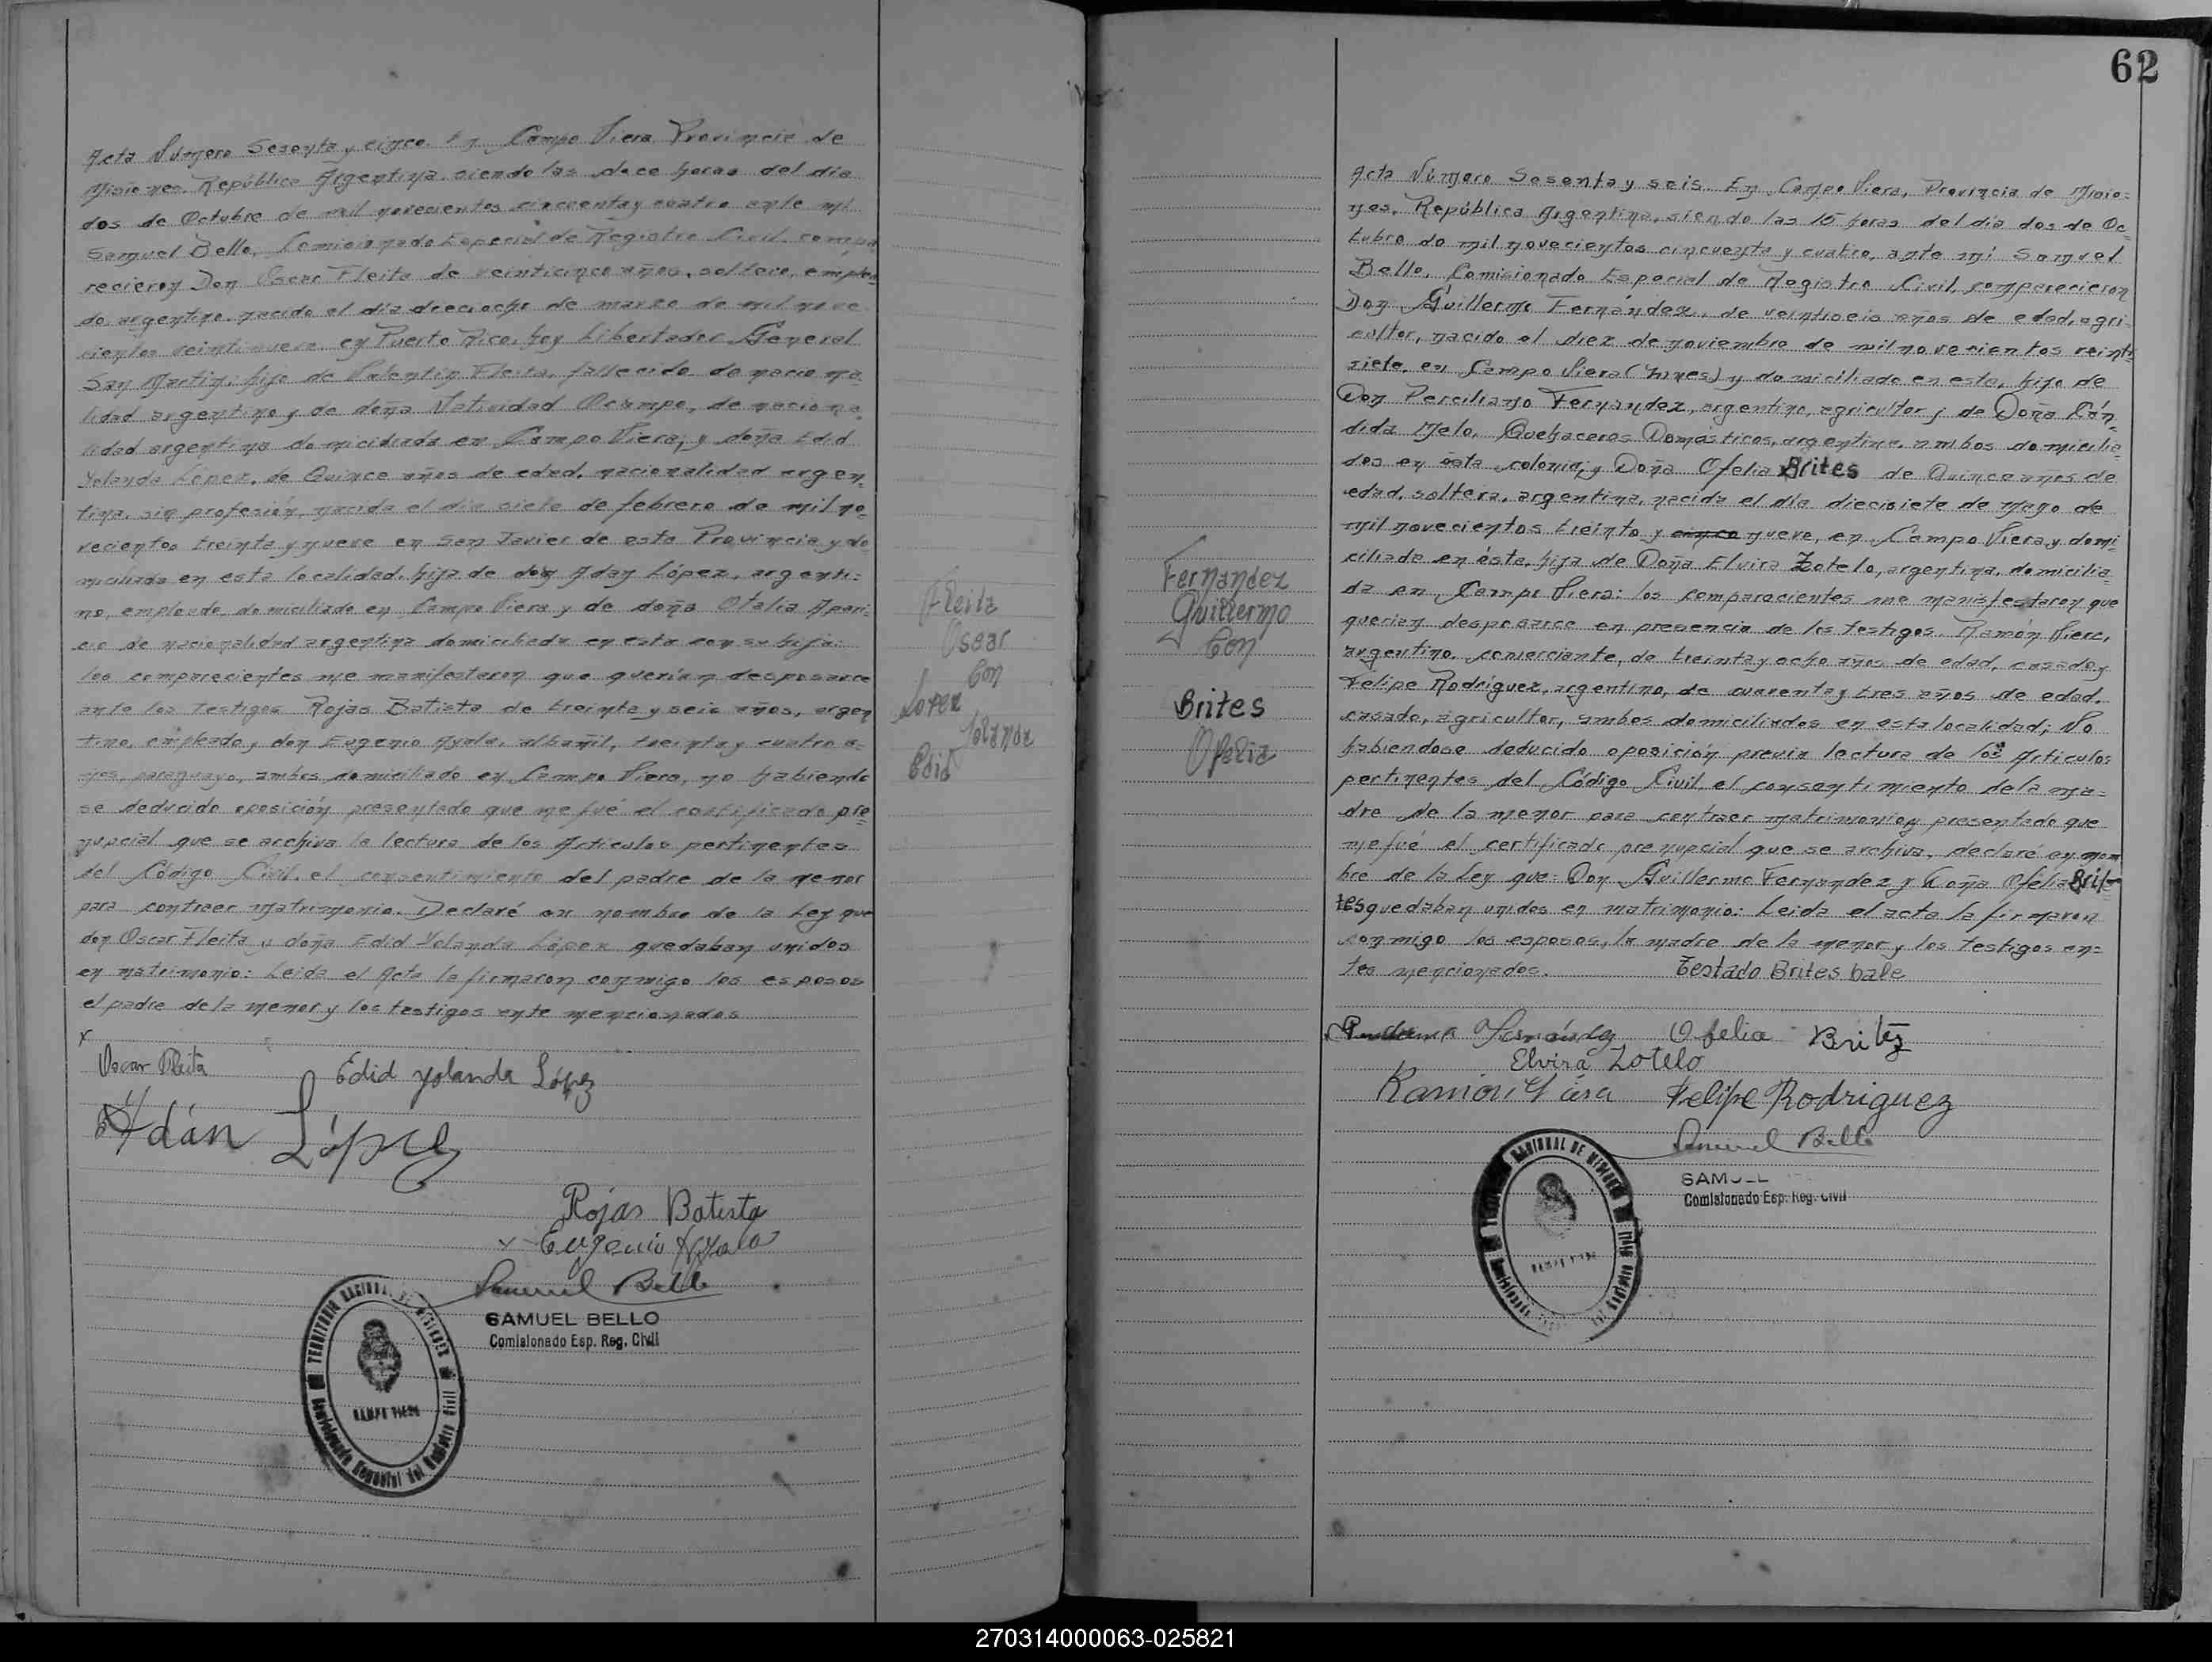 Acta Número Sesenta y cinco. En Campo Viera Provincia de
Misiones. República Argentina. siendo las doce horas del día
dos de Octubre de mil novecientos cincuenta y cuatro ante mí
Samuel Bello, Comisionado Especial de Registro Civil. compa
recieron Don Oscar Fleita de veinticinco años, soltero, emplea=
do argentino. nacido el día dieciocho de marzo de mil nove
cientos veintinueve. en Puerto Rico, hoy Libertador General
San Martin; hijo de Valentin Fleita, fallecido de naciona
lidad argentino y de doña Natividad Ocampo, de naciona
lidad argentina domiciliada en Campo Viera; y doña Edid
Yolanda López, de Quince años de edad, nacionalidad argen,
tina, sin profesión, nacida el día siete de febrero de mil no=
vecientos treinta y nueve en San Javier de esta Provincia y do
miciliada en esta localidad. hija de don Adan López, argenti=
no, empleado, domiciliado en Campo Viera y de doña Otalia Apari=
cio de nacionalidad argentina domiciliada en esta con su hija:
los comparecientes me manifestaron que querían desposarce
ante los testigos Rojas Batista de treinta y seis años, argen
tino, empleado y don Eugenio Ayala, albañil, treinta y cuatro a=
ños, paraguayo, ambos domiciliado en Campo Viera, no habiendo
se deducido oposición presentado que me fué el certificado pre=
nupcial que se archiva la lectura de los Articulos pertinentes
del Código Civil. el consentimiento del padre de la menor
para contraer matrimonio. Declaré en nombre de la Ley que
don Oscar Fleita y doña Edid Yolanda López quedaban unidos
en matrimonio: Leida el Acta la firmaron conmigo los esposos
el padre de la menor y los testigos ante mencionados
x
Oscar Fleita Edid Yolanda López
Adán López
Rojas Batista
x Eugenio Ayala
Samuel Bello
SAMUEL BELLO
Comisionado Esp. Reg. Civil
TERRITORIO NACIONAL DE MISIONES
CAMPO VIERA
Comisionado Especial del Registro Civil
Fleita
Oscar
Con
Lopez
Yolanda
Edid
62
Acta Número Sesenta y seis. En Campo Viera, Provincia de Misio=
nes. República Argentina, siendo las 15 horas del día dos de Oc=
tubre de mil novecientos cincuenta y cuatro, ante mí Samuel
Bello, Comisionado Especial de Registro Civil, comparecieron
Don Guillermo Fernández, de veintiseis años de edad, agri
cultor, nacido el diez de noviembre de mil novecientos veinti
siete, en Campo Viera y domiciliado en esta, hijo de
Don Perciliano Fernandez, argentino, agricultor y de Doña Cán,
dida Melo, Quehaceres Domésticos, argentina. ambos domicilia=
dos en ésta colonia; y Doña Ofelia Brites de Quince años de
edad, soltera, argentina, nacida el día diecisiete de Mayo de
mil novecientos treinta y cinco nueve, en Campo Viera y domi=
ciliada en ésta, hija de Doña Elvira Zotelo, argentina. domicilia=
da en Campo Viera: los comparecientes me manifestaron que
querian desposarce en presencia de los testigos Ramón Viera,
argentino, comerciante, de treinta y ocho años de edad, casado y
Felipe Rodriguez, argentino, de cuarenta y tres años de edad.
casado, agricultor, ambos domiciliados en esta localidad; No
habiendose deducido oposición previa lectura de los Articulos
pertinentes del Código Civil el consentimiento de la ma=
dre de la menor para contraer matrimonio y presentado que
me fué el certificado prenupcial que se archiva, declaré en nom
bre de la Ley que: Don Guillermo Fernandez y Doña Ofelia Bri=
tes quedaban unidos en matrimonio: Leida el acta la firmaron
conmigo los esposos, la madre de la menor y los testigos an=
tes mencionados. Testado Brites bale
Fernández Ofelia Britez
Elvira Zotelo
Ramón Viera Felipe Rodriguez
Samuel Bello
Comisionado Esp. Reg. Civil
Fernandez
Guillermo
Con
Brites
Ofelia
270314000063-025821